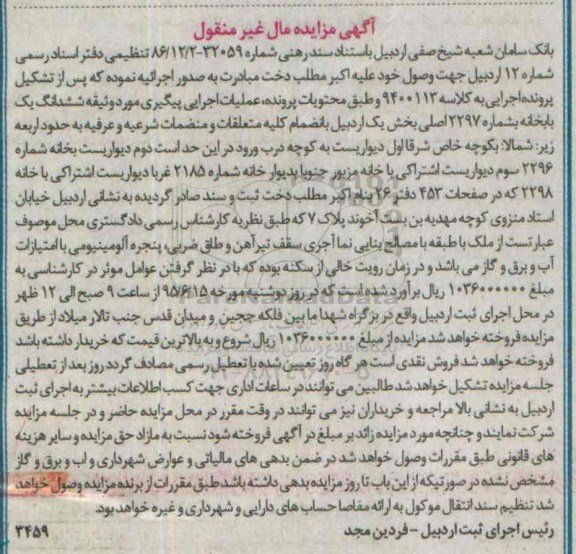 آگهی مزایده مال غیر منقول
بانک سامان شعبه شیخ صفی اردبیل باستناد سند رهنی شماره ۳۲۰۵۹-۸۶/۱۲/۲ تنظیمی دفتر اسناد رسمی
شماره ۱۲ اردبیل جهت وصول خود علیه اکبر مطلب دخت مبادرت به صدور اجرائیه نموده که پس از تشکیل
پرونده اجرایی به کلاسه ۹۴۰۰۱۱۳ و طبق محتویات پرونده، عملیات اجرایی پیگیری مورد وثیقه ششدانگ یک
بابخانه بشماره ۲۲۹۷ اصلی بخش یک اردبیل بانضمام کلیه متعلقات و منضمات شرعیه و عرفیه به حدود اربعه
زیر: شمالا: بکوچه خاص شرقا اول دیواریست به کوچه درب ورود در این حد است دوم دیواریست بخانه شماره
۲۲۹۶ سوم دیواریست اشتراکی با خانه مزبور جنوبا بدیوار خانه شماره ۲۱۸۵ غربا دیواریست اشتراکی با خانه
۲۲۹۸ که در صفحات ۴۵۳ دفتر ۲۶ بنام اکبر مطلب دخت ثبت و سند صادر گردیده به نشانی اردبیل خیابان
استاد منزوی کوچه مهدیه بن بست آخوند پلاک ۷ که طبق نظریه کارشناس رسمی دادگستری محل موصوف
عبارتست از ملک با طبقه با مصالح بنایی نما آجری سقف تیرآهن و طاق ضربی، پنجره آلومینیومی با امتیازات
آب و برق و گاز می باشد و در زمان رویت خالی از سکنه بوده که با در نظر گرفتن عوامل موثر در کارشناسی به
مبلغ ۱۰۳۶۰۰۰۰۰۰ ریال برآورد شده است که در روز دوشنبه مورخه ۹۵/۶/۱۵ از ساعت ۹ صبح الی ۱۲ ظهر
در محل اجرای ثبت اردبیل واقع در بزرگراه شهدا ما بین فلکه ججین و میدان قدس جنب تالار میلاد از طریق
مزایده فروخته خواهد شد مزایده از مبلغ ۱۰۳۶۰۰۰۰۰۰ ریال شروع و به بالاترین قیمت که خریدار داشته باشد
فروخته خواهد شد فروش نقدی است هر گاه روز تعیین شده با تعطیل رسمی مصادف گردد روز بعد از تعطیلی
جلسه مزایده تشکیل خواهد شد طالبین می توانند در ساعات اداری جهت کسب اطلاعات بیشتر به اجرای ثبت
اردبیل به نشانی بالا مراجعه و خریداران نیز می توانند در وقت مقرر در محل مزایده حاضر و در جلسه مزایده
شرکت نمایند و چنانچه مورد مزایده زائد بر مبلغ در آگهی فروخته شود نسبت به مازاد حق مزایده و سایر هزینه
های قانونی طبق مقررات وصول خواهد شد در ضمن بدهی های مالیاتی و عوارض شهرداری و اب و برق و گاز
مشخص نشده در صورتیکه از این باب تا روز مزایده بدهی داشته باشد طبق مقررات از برنده مزایده وصول خواهد
شد تنظیم سند انتقال موکول به ارائه مفاصا حساب های دارایی و شهرداری و غیره خواهد بود.
رئیس اجرای ثبت اردبیل - فردین مجد ۳۴۵۹